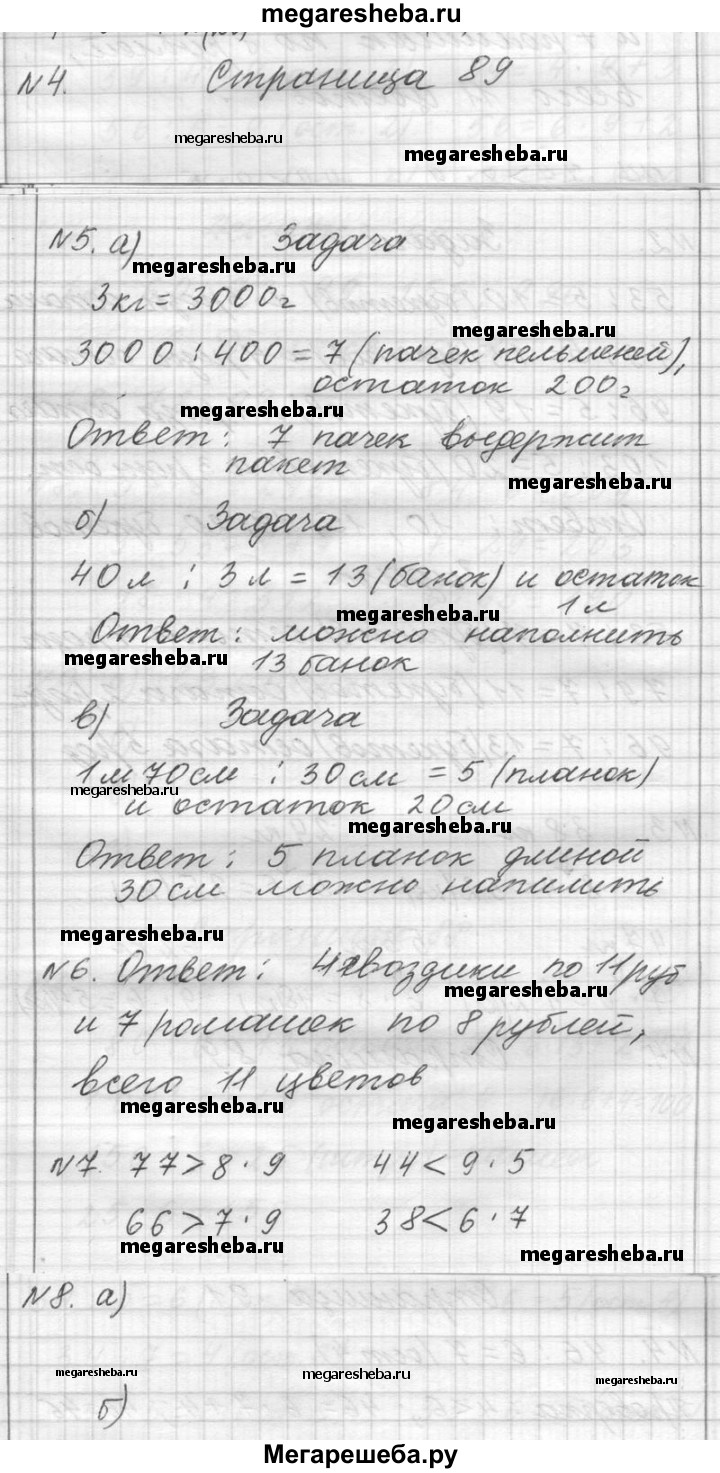 megaresheba.ru
N4. Страница 89
megaresheba.ru
megaresheba.ru
N5. а) Задача
megaresheba.ru
3кг = 3000г
megaresheba.ru
3000 : 400 = 7 (пачек пельменей),
остаток 200г
megaresheba.ru
Ответ: 7 пачек выдержит
пакет
megaresheba.ru
б) Задача
40л : 3л = 13 (банок) и остаток
1л
megaresheba.ru
Ответ: можно наполнить
megaresheba.ru
13 банок
в) Задача
1м 70см : 30см = 5 (планок)
megaresheba.ru
и остаток 20см
megaresheba.ru
Ответ: 5 планок длиной
30см можно напилить
megaresheba.ru
N6. Ответ: 4 гвоздики по 11 руб
megaresheba.ru
и 7 ромашек по 8 рублей,
всего 11 цветов
megaresheba.ru
megaresheba.ru
N7. 77 > 8 · 9 44 < 9 · 5
66 > 7 · 9 38 < 6 · 7
megaresheba.ru
megaresheba.ru
N8. а)
megaresheba.ru
megaresheba.ru
megaresheba.ru
б)
Мегарешеба.ру